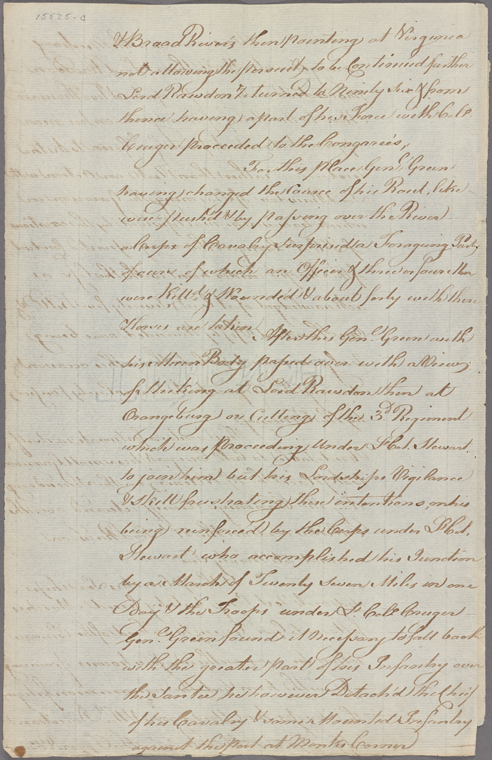 15525-c
& Broad Rivers then pointing at Virginia
not allowing the pursuit to be Continued further
Lord Rawdon Return'd to Ninety Six & from
thence having a part of his Force with Col.
Cruger proceeded to the Congarees,
To this place Genl. Green
having changed the Course of his Rout, like
wise pushed & by passing over the River
a Corps of Cavalry Surprised a Foraging Party
of ours of which an Officer & three or four Men
were Kill'd & Wounded & about forty with their
Horses are taken. After this Genl. Green with
his Main Body passed over with a View
of Striking at Lord Rawdon then at
Orangeburg or Cutting of the 3d. Regiment
which was proceeding under Lt. Col. Stewart
to join him but his Lordships Vigilance
& Skill frustrating these intentions, and
being reinforced by the Corps under Lt. Col.
Stewart who accomplished his Junction
by a March of Twenty Seven Miles in one
Day & the Troops under Lt. Colo. Cruger
Genl. Green found it Necessary to fall back
with the greater part of his Infantry over
the Santee his however Detach'd the Chief
of his Cavalry & some Mounted Infantry
against the Post at Monks Corner